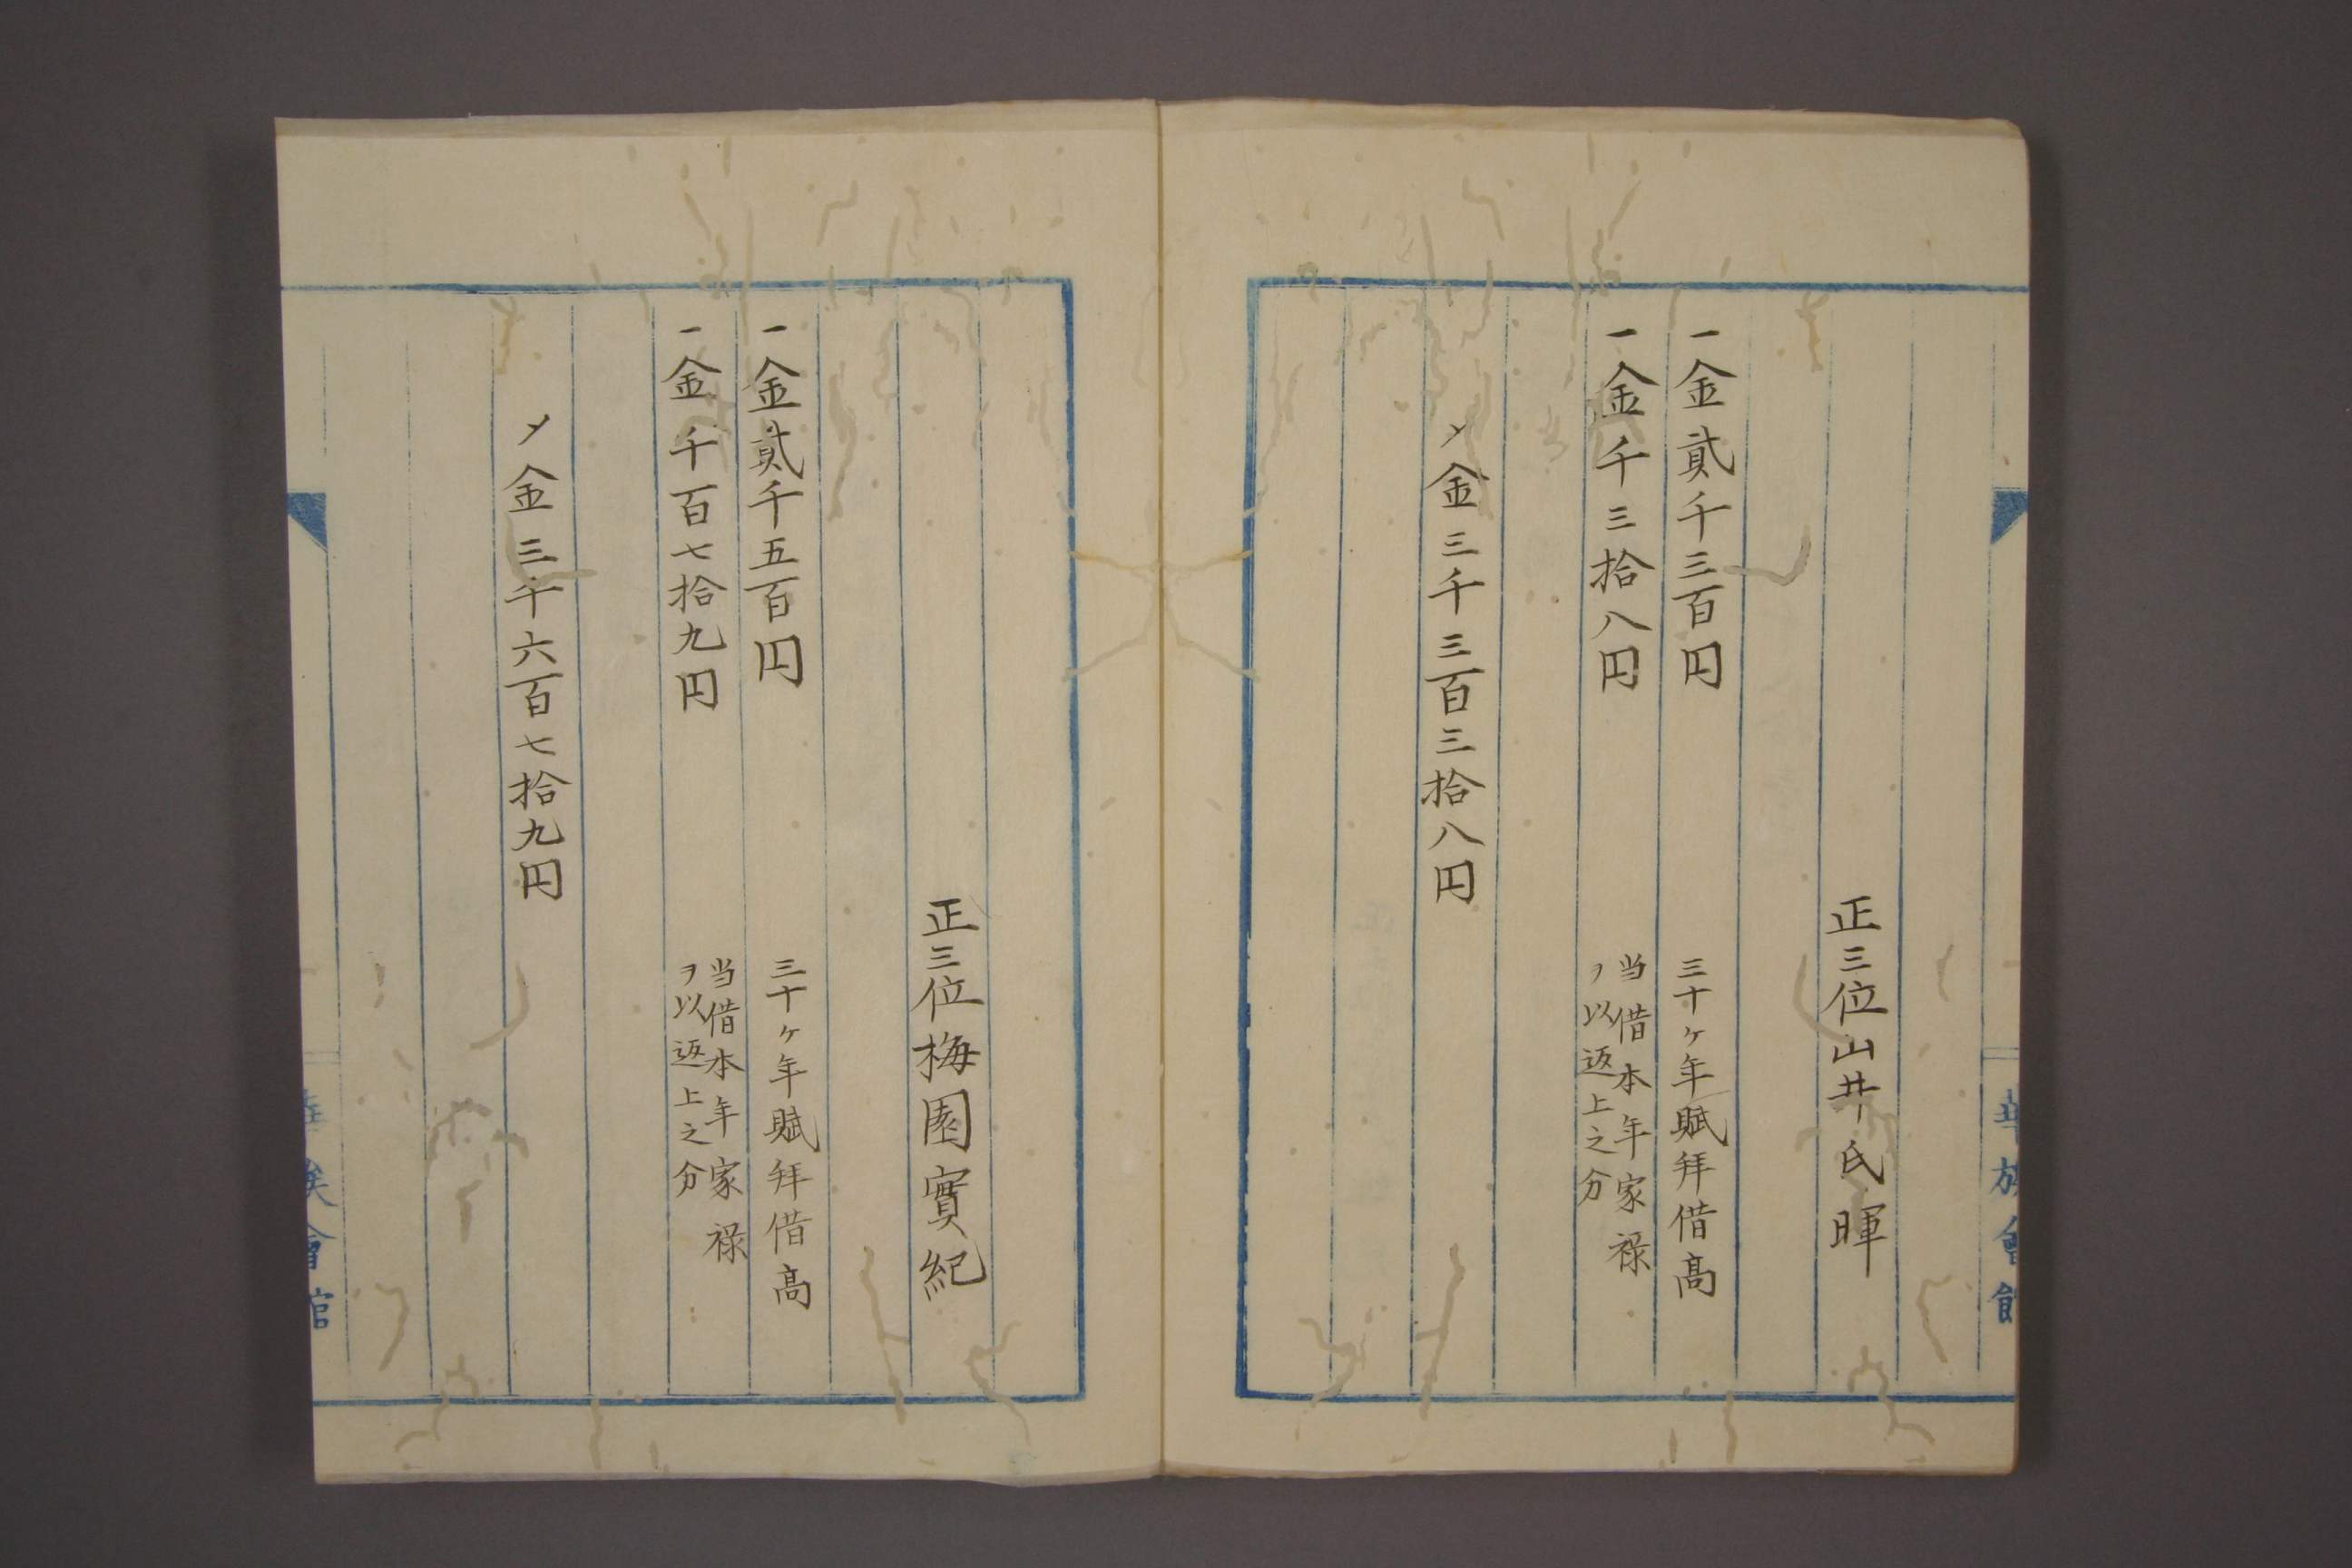 正三位山井氏暉
一金貳千三百円
三十ヶ年賦拜借高
一金千三拾八円
当借本年家禄
ヲ以返上之分
〆金三千三百三拾八円
華族會館
正三位梅園實紀
一金貳千五百円
三十ヶ年賦拜借高
一金千百七拾九円
当借本年家禄
ヲ以返上之分
〆金三千六百七拾九円
華族會館